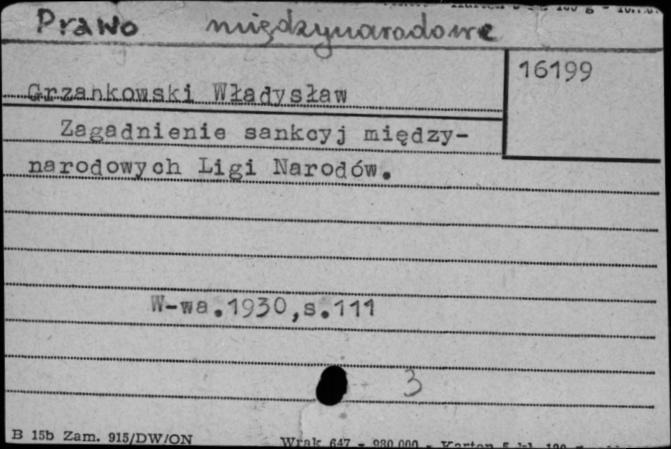 Prawo międzynarodowe
16199
Grzankowski Władysław
Zagadnienie sankcyj między-
narodowych Ligi Narodów.
W-wa.1930,s.111
3
B 15b Zam. 915/DW/ON
Wrak 647 - 980.000 - Karton 5 kl.